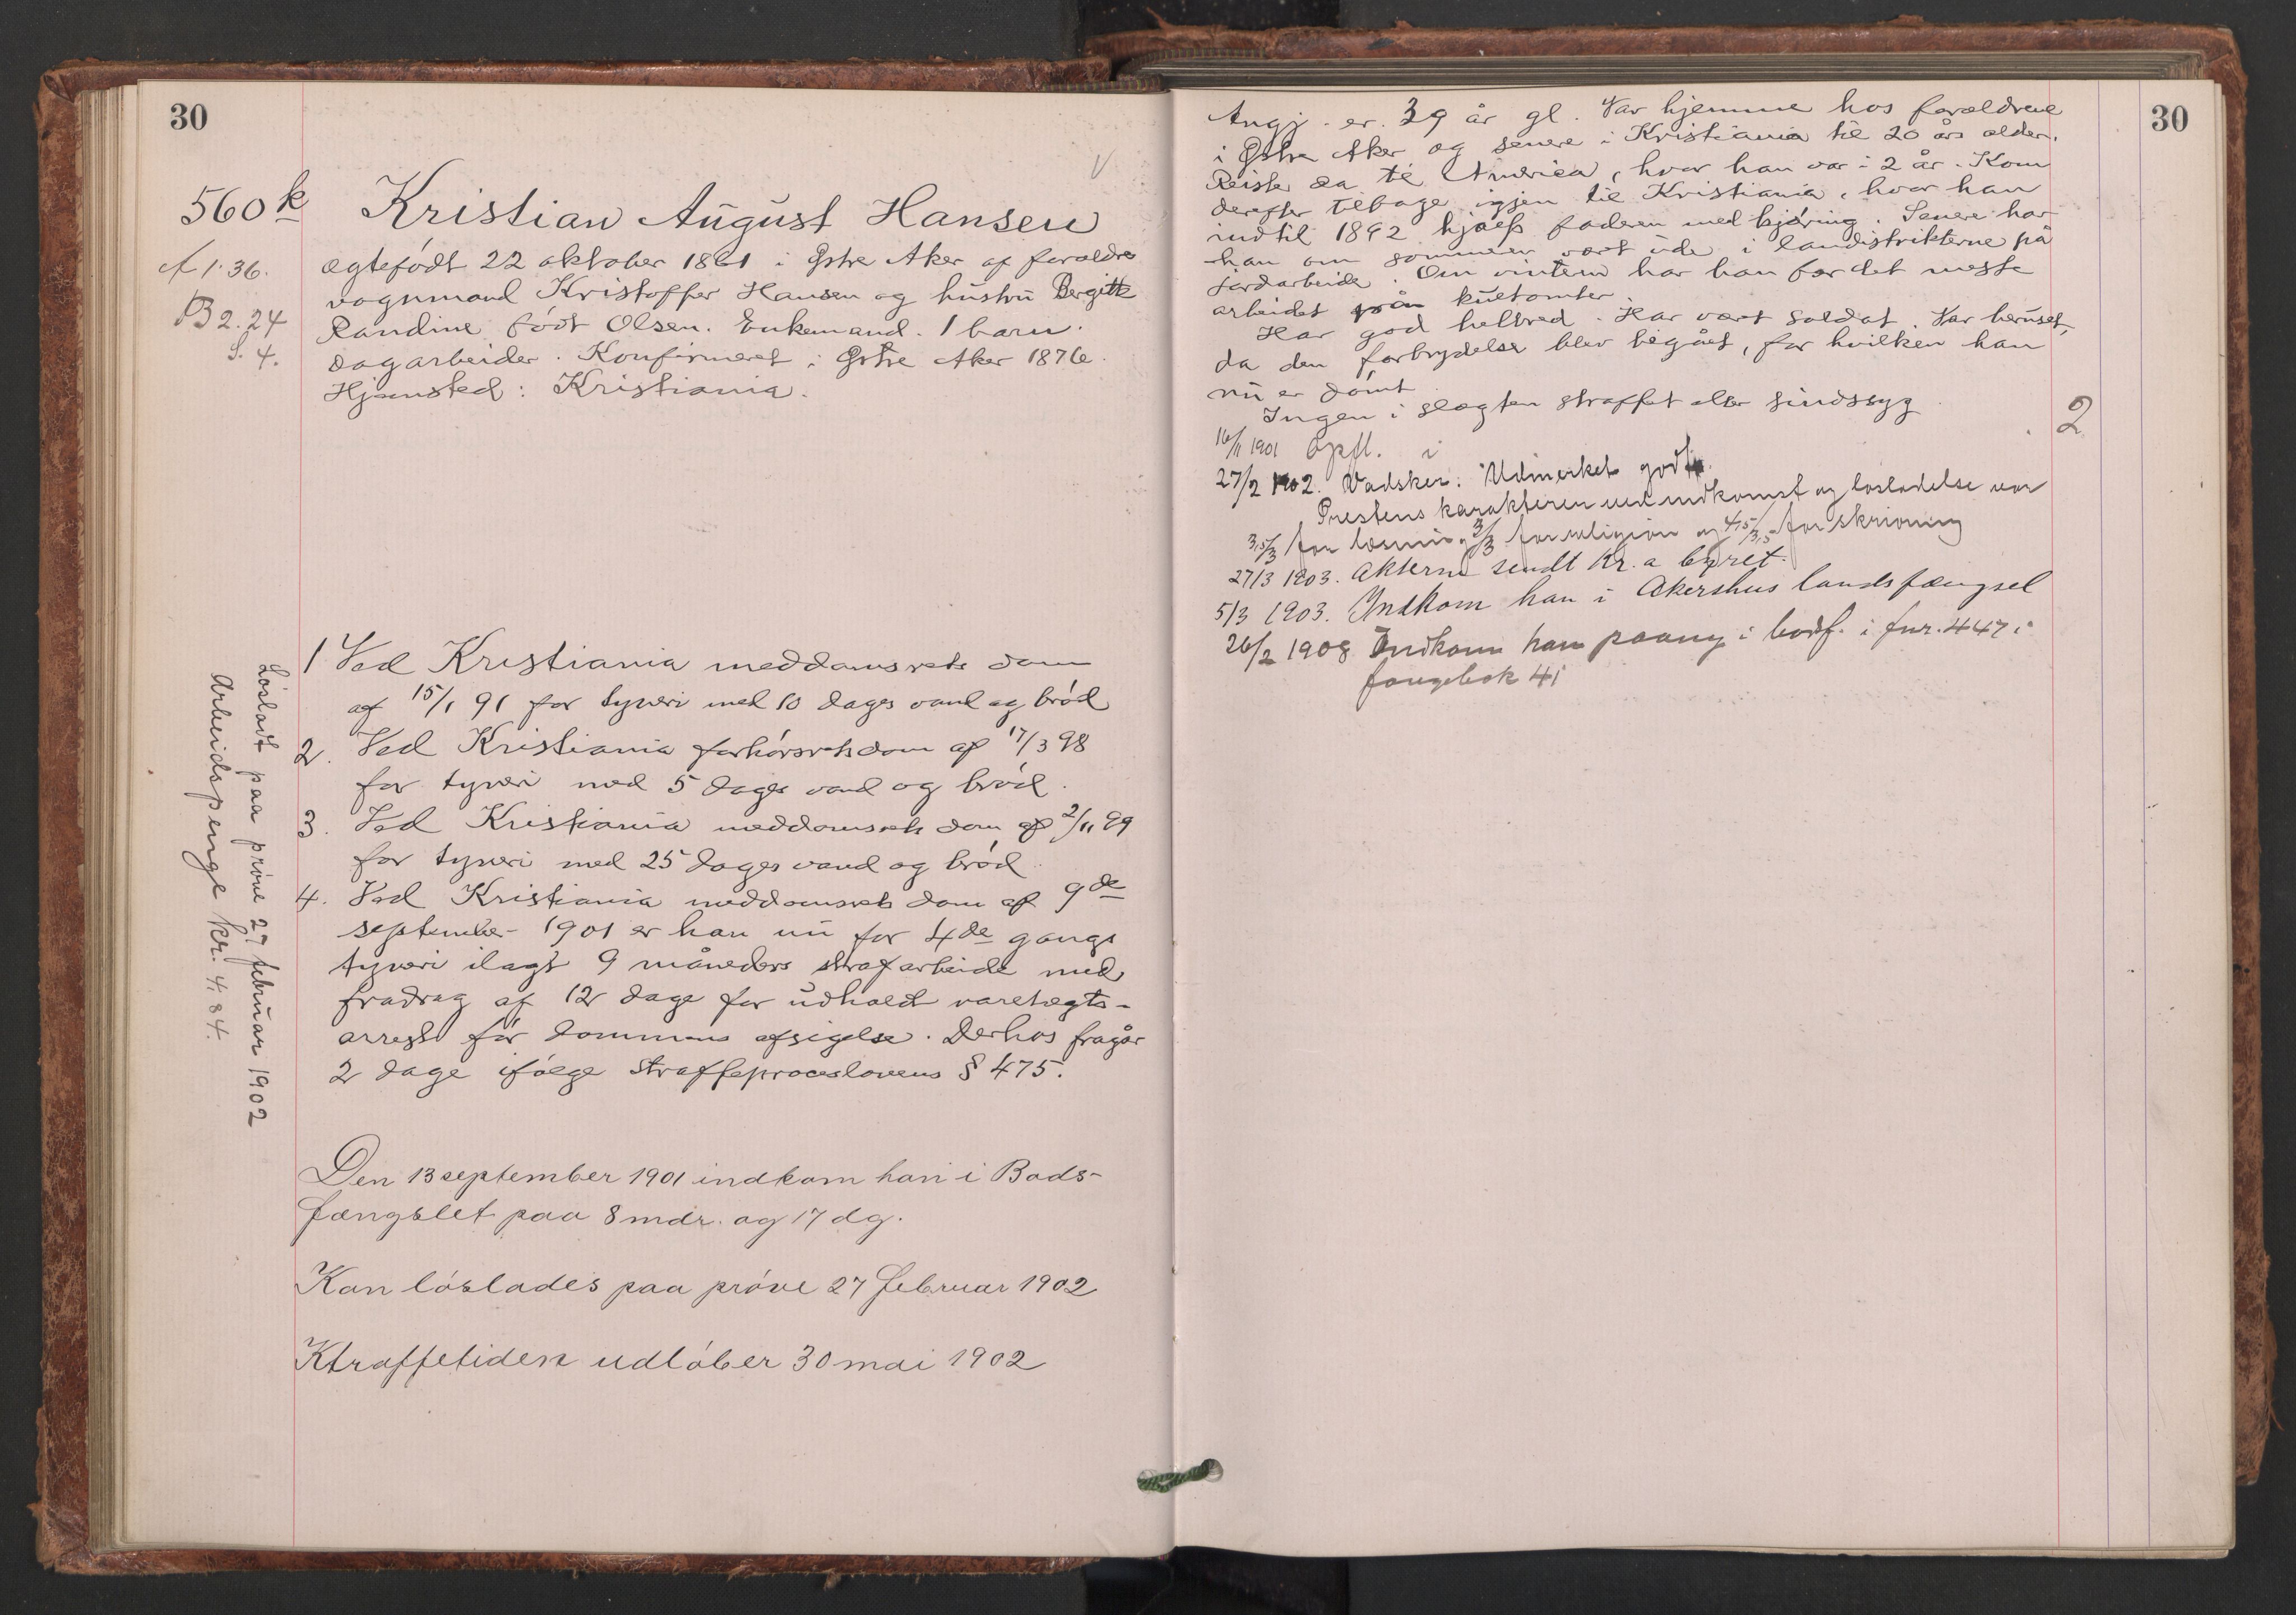 30
560 k
A 1.36.
B 2.24
S. 4.
V
Kristian August Hansen
ægtefødt 22 oktober 1861 i Østre Aker af foreldre
vognmand Kristoffer Hansen og hustru Bergitte
Randine født Olsen. Enkemand. 1 barn.
Dagarbeider. Konfirmeret i Østre Aker 1876.
Hjemsted: Kristiania.
1 Ved Kristiania meddomsrets dom
af 15/1 91 for tyveri med 10 dages vand og brød
2. Ved Kristiania forhørsrets dom af 17/3 98
for tyveri med 5 dages vand og brød.
3. Ved Kristiania meddomsrets dom af 2/11 99
for tyveri med 25 dages vand og brød.
4. Ved Kristiania meddomsrets dom af 9de
september 1901 er han nu for 4de gangs
tyveri ilagt 9 måneders strafarbeide med
fradrag af 12 dage for udholdt varetægts-
arrest før dommens afsigelse. Derhos fragår
2 dage ifølge straffeproceslovens § 475.
Den 13 september 1901 indkom han i Bods-
fængslet paa 8 mdr. og 17 dg.
Kan løslades paa prøve 27 februar 1902
Straffetiden udløber 30 mai 1902
Løsladt paa prøve 27 februar 1902
Arbeidspenge kr. 4,84.
30
Angj. er 39 år gl. Var hjemme hos forældrene
i Østre Aker og senere i Kristiania til 20 års alder.
Reiste da til Amerika, hvor han var i 2 år. Kom
derefter tilbage igjen til Kristiania, hvor han
indtil 1892 hjalp faderen med kjøring. Senere har
han om sommeren vært ude i landistrikterne på
jordarbeide. Om vinteren har han for det meste
arbeidet på kultomter.
Har god helbred. Har vært soldat. Var beruset,
da den forbrydelse blev begået, for hvilken han
nu er dømt.
Ingen i slægten straffet eller sindssyg.
2
16/11 1901 Opfl. i
27/2 1902. Vadsker. Udmerket godt.
Prestens karakterer ved indkomst og løsladelse var
3,5/3 for læsning, 3/3 for religion og 4,5/3,5 for skrivning
27/3 1903. Akterne sendt Kr.a byret.
5/3 1903. Indkom han i Akershus landsfængsel
26/2 1908 Indkom han paany i bodsf. i fnr. 447 i
fangebok 4i